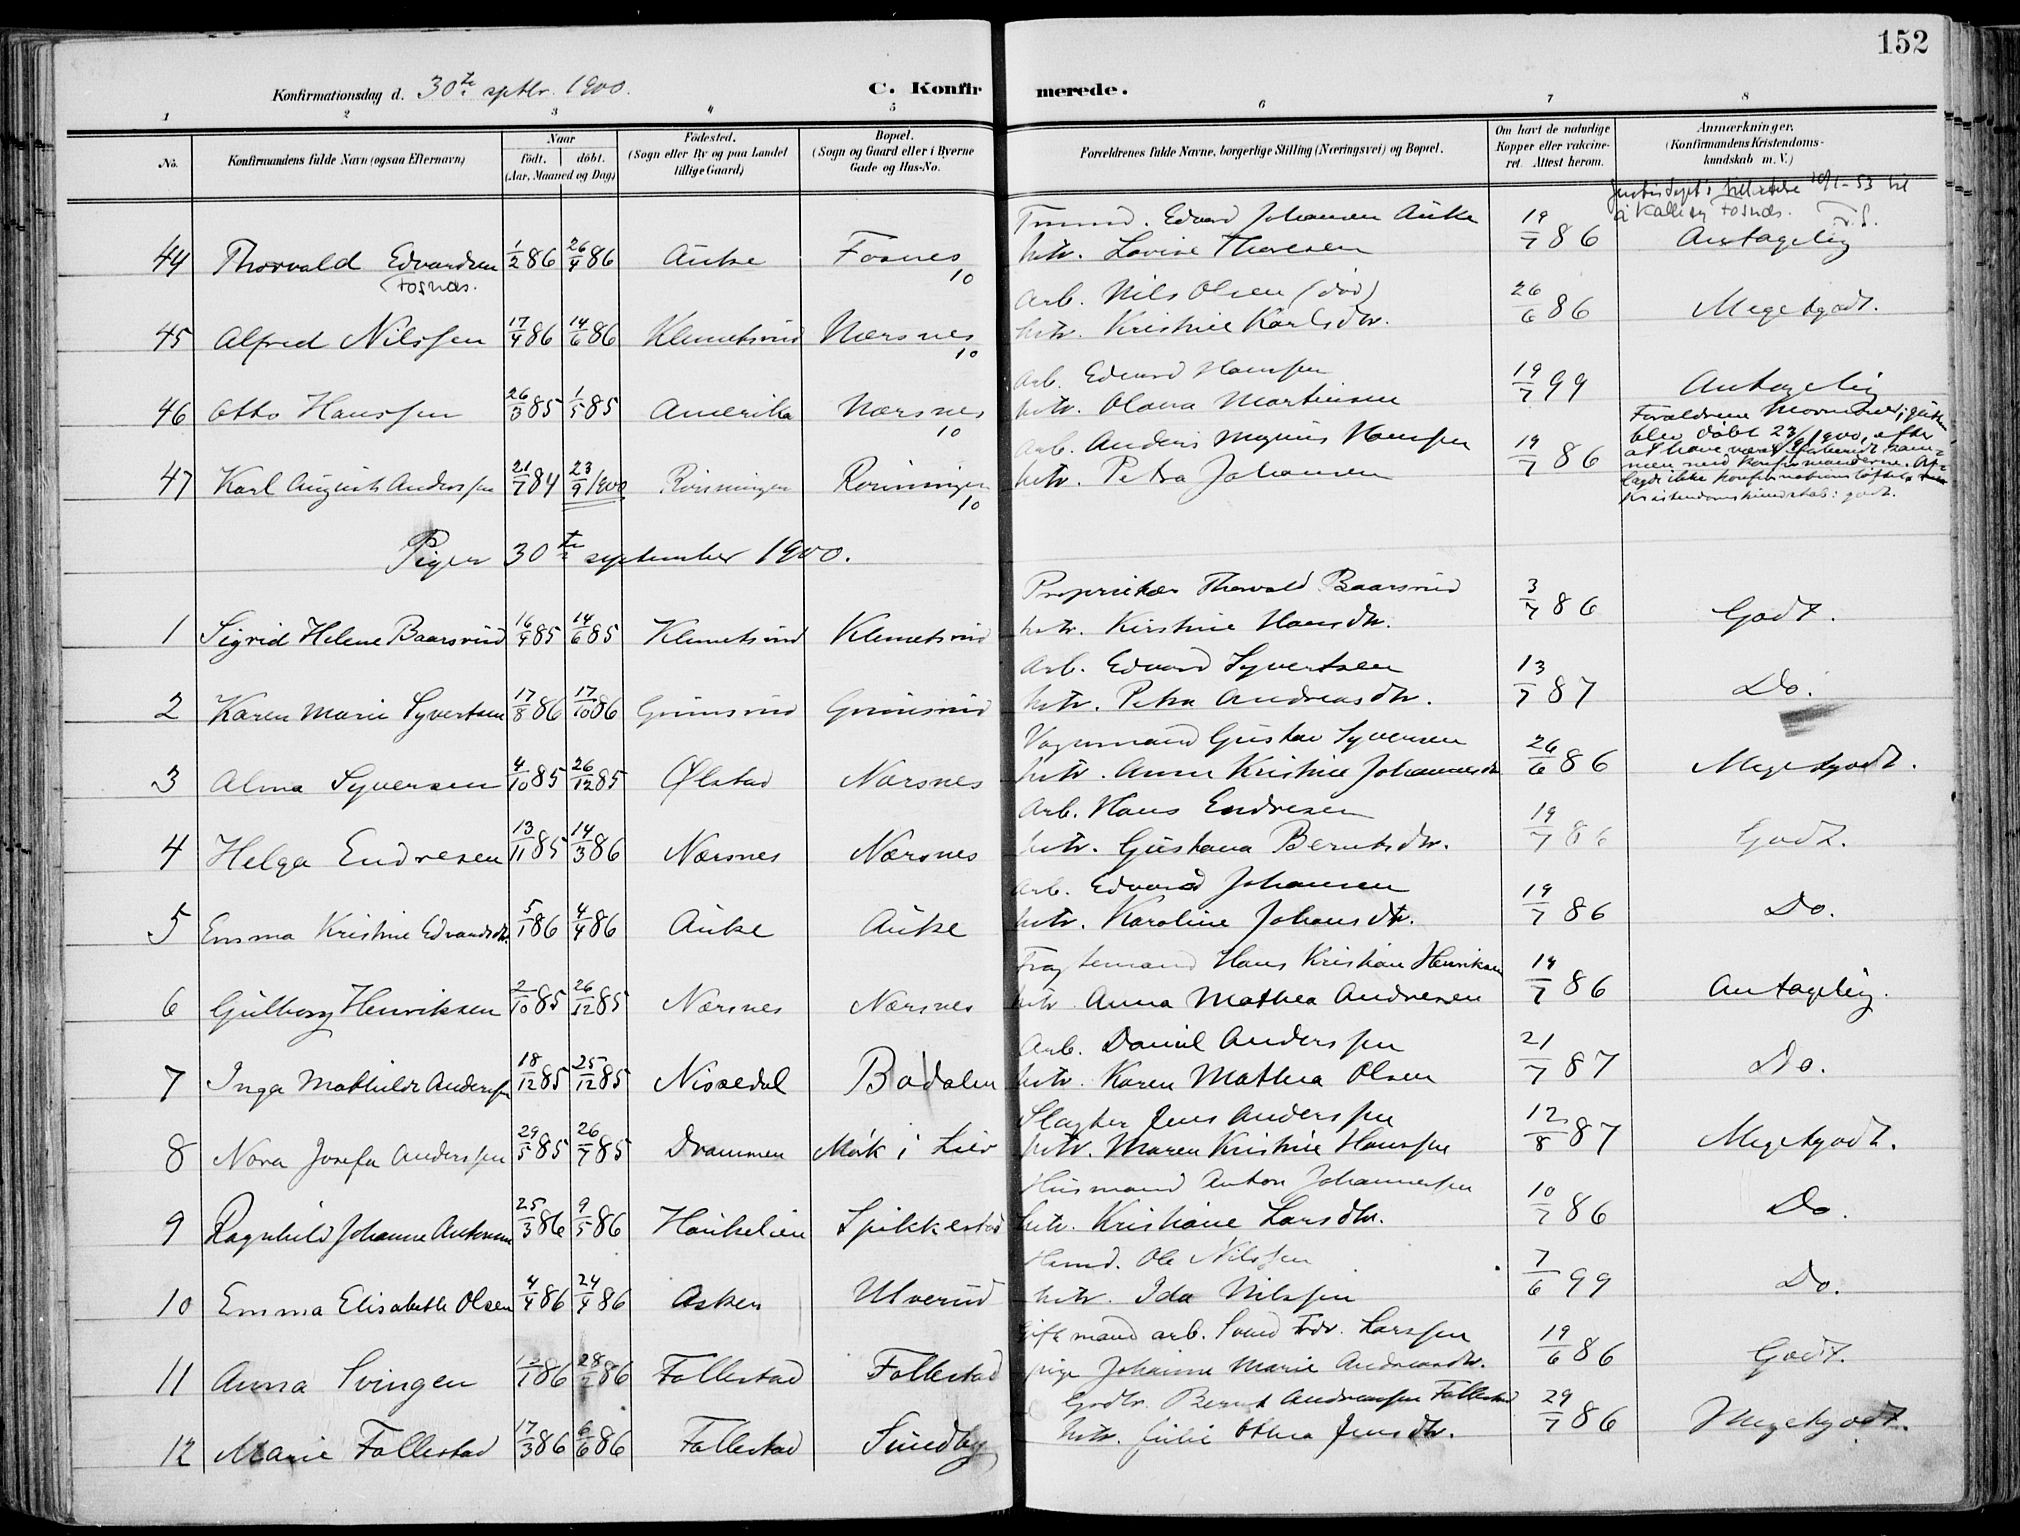 152
Konfirmationsdag d. 30te septbr. 1900.
C. Konfirmerede.
1 2 3 4 5 6 7 8
No. Konfirmandens fulde Navn (ogsaa Efternavn) Naar født. døbt. (Aar, Maaned og Dag) Fødested. (Sogn eller By og paa Landet tillige Gaard) Bopæl. (Sogn og Gaard eller i Byerne Gade og Hus-No. Forældrenes fulde Navne, borgerlige Stilling (Næringsvei) og Bopæl. Om havt de naturlige Kopper eller vakcineret. Attest herom. Anmærkninger. (Konfirmandens Kristendomskundskab m. V.)
Edvard Johansen Auke
44 Thorvald Edvardsen 1/2 86 26/4 86 Auke Fosnes htr. Lovise Thoresen 19/7 86 Antagelig
Fosnæs. 10
Arb. Nils Olsen (død)
45 Alfred Nilssen 17/4 86 14/6 86 Klemetsrud Nærsnes htr. Kristine Karlsdtr. 26/6 86 Megetgodt.
10
Arb. Edvard Hanssen
46 Otto Hanssen 26/3 85 1/5 85 Amerika Nærsnes htr. Olava Martinsen 19/7 99 Antagelig
10
Arb. Anders Magnus Hanssen
47 Karl August Anderssen 21/7 84 23/9 1900 Rønningen Rønningen htr. Petra Johansen 19/7 86 Forældrene Mormoner; gutten
blev døbt 23/9 1900, efter
at have været forberedt sammen med konfirmanderne. Aflagde ikke konfirmationsløfte.
Kristendomskundskab: godt.
10
Piger 30te september 1900.
Proprietær Thorvald Baarsrud
1 Sigrid Helene Baarsrud 16/4 85 14/6 85 Klemetsrud Klemetsrud htr. Kirstine Hansdtr. 3/7 86 Godt.
Arb. Edvard Syvertsen
2 Karen Marie Syvertsen 17/8 86 17/10 86 Grimsrud Grimsrud htr. Petra Andreasdtr. 13/7 87 Do.
Vognmand Gustav Syversen
3 Alma Syversen 4/10 85 26/12 85 Ølstad Nærsnes htr. Anne Kristine Johannesdtr 26/6 86 Megetgodt.
Arb. Hans Endresen
4 Helga Endresen 13/11 85 14/3 86 Nærsnes Nærsnes htr. Gustava Berntsdtr. 19/7 86 Godt.
Arb. Edvard Johansen
5 Emma Kristine Edvardsdtr. 5/1 86 4/4 86 Auke Auke htr. Karoline Johansdtr. 19/7 86 Do.
Fragtemand Hans Kristian Henriksen
6 Gulborg Henriksen 2/10 85 26/12 85 Nærsnes Nærsnes htr. Anna Mathea Andresen 19/7 86 Antagelig.
Arb. Daniel Anderssen
7 Inga Mathilde Anderssen 18/12 85 25/12 85 Nissedal Bødalen htr. Karen Mathea Olsen 21/7 87 Do.
Slagter Jens Anderssen
8 Nora Josefa Anderssen 29/5 85 26/7 85 Drammen Mørk i Lier htr. Maren Kristine Hanssen 12/8 87 Megetgodt.
Husmand Anton Johannessen
9 Ragnhild Johanne Antonsen 25/3 86 9/5 86 Haukelien Spikkestad htr. Kristiane Larsdtr. 10/7 86 Do.
Ole Nilssen
10 Emma Elisabeth Olsen 4/4 86 24/4 86 Asker Ulverud htr. Ida Nilssen 7/6 99 Do.
Gift mand arb. Svend Fdr. Larssen
11 Anna Svingen 86 28/2 86 Follestad Follestad pige Johanne Marie Andreasdtr. 19/6 86 Godt.
Gdbr. Bernt Andreassen Follestad
12 Marie Follestad 17/3 86 6/6 86 Follestad Sundby htr. Julie Othea Jensdtr. 29/7 86 Megetgodt.